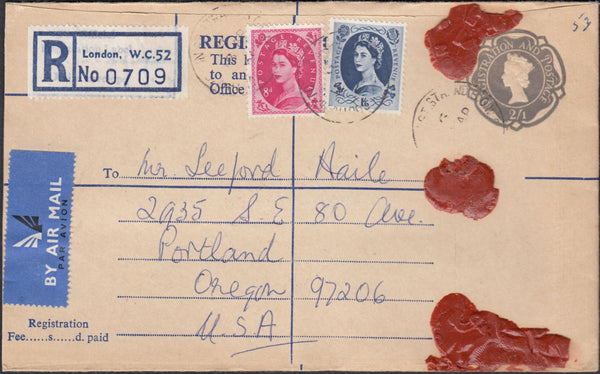 53
R
London, W.C.52
No 0709
This
to an
Office
POSTAGE REVENUE
8d
POSTAGE REVENUE
1/6
REGISTRATION AND POSTAGE
2/1
BY AIR MAIL
PAR AVION
To Mr Leeford Haile
2935 S.E 80 Ave.
Portland
Oregon 97206
USA
Registration
Fee......s......d. paid